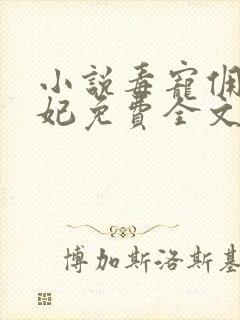 小説毒寵佣
妃免費全文
博加斯洛斯基